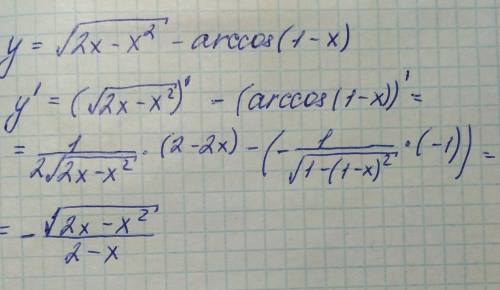 y = √(2x - x²) - arccos(1 - x)
y' = (√(2x - x²))' - (arccos(1 - x))' =
= 1/(2√(2x - x²)) · (2 - 2x) - (- 1/√(1 - (1 - x)²) · (-1)) =
= - √(2x - x²)/(2 - x)